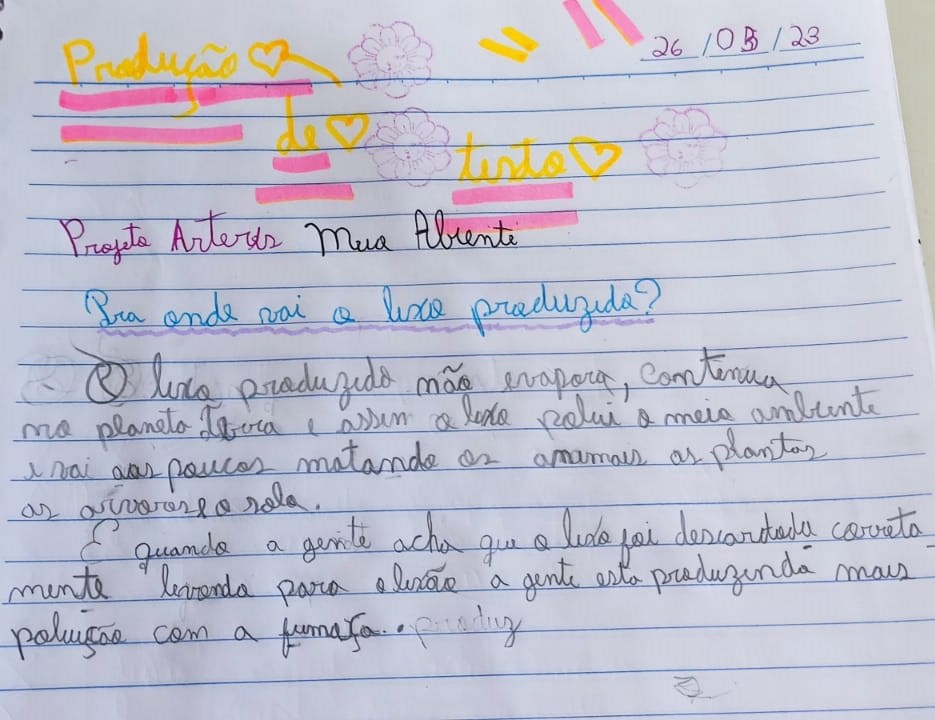 26/05/23
Produção
de
texto
Projeto Arteris Meio Abiente
Pra onde vai o lixo produzido?
O lixo produzido não evapora, continua
no planeta Terra e assim o lixo polui o meio ambiente
e vai aos poucos matando os animais as plantas
as arvores e o solo.
E quando a gente acha que o lixo foi descartado correta-
mente levando para o lixão a gente esta produzindo mais
poluição com a fumaça.. produz